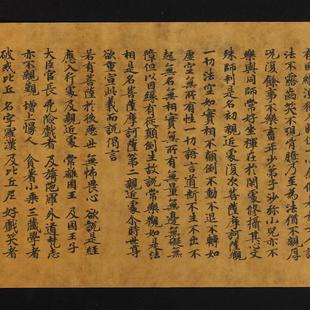 有因緣須獨入時但一心念佛若為女人說
法不露齒笑不現胸臆乃至為法猶不親厚
況復餘事不樂畜年少弟子沙彌小兒亦不
樂與同師常好坐禪在於閑處修攝其心文
殊師利是名初親近處復次菩薩摩訶薩觀
一切法空如實相不顛倒不動不退不轉如
虛空無所有性一切語言道斷不生不出不
起無名無相實無所有無量無邊無礙無
障但以因緣有從顛倒生故說常樂觀如是法
相是名菩薩摩訶薩第二親近處爾時世尊
欲重宣此義而說偈言
若有菩薩 於後惡世 無怖畏心 欲說是經
應入行處 及親近處 常離國王 及國王子
大臣官長 兇險戲者 及旃陀羅 外道梵志
亦不親近 增上慢人 貪著小乘 三藏學者
破戒比丘 名字羅漢 及比丘尼 好戲笑者